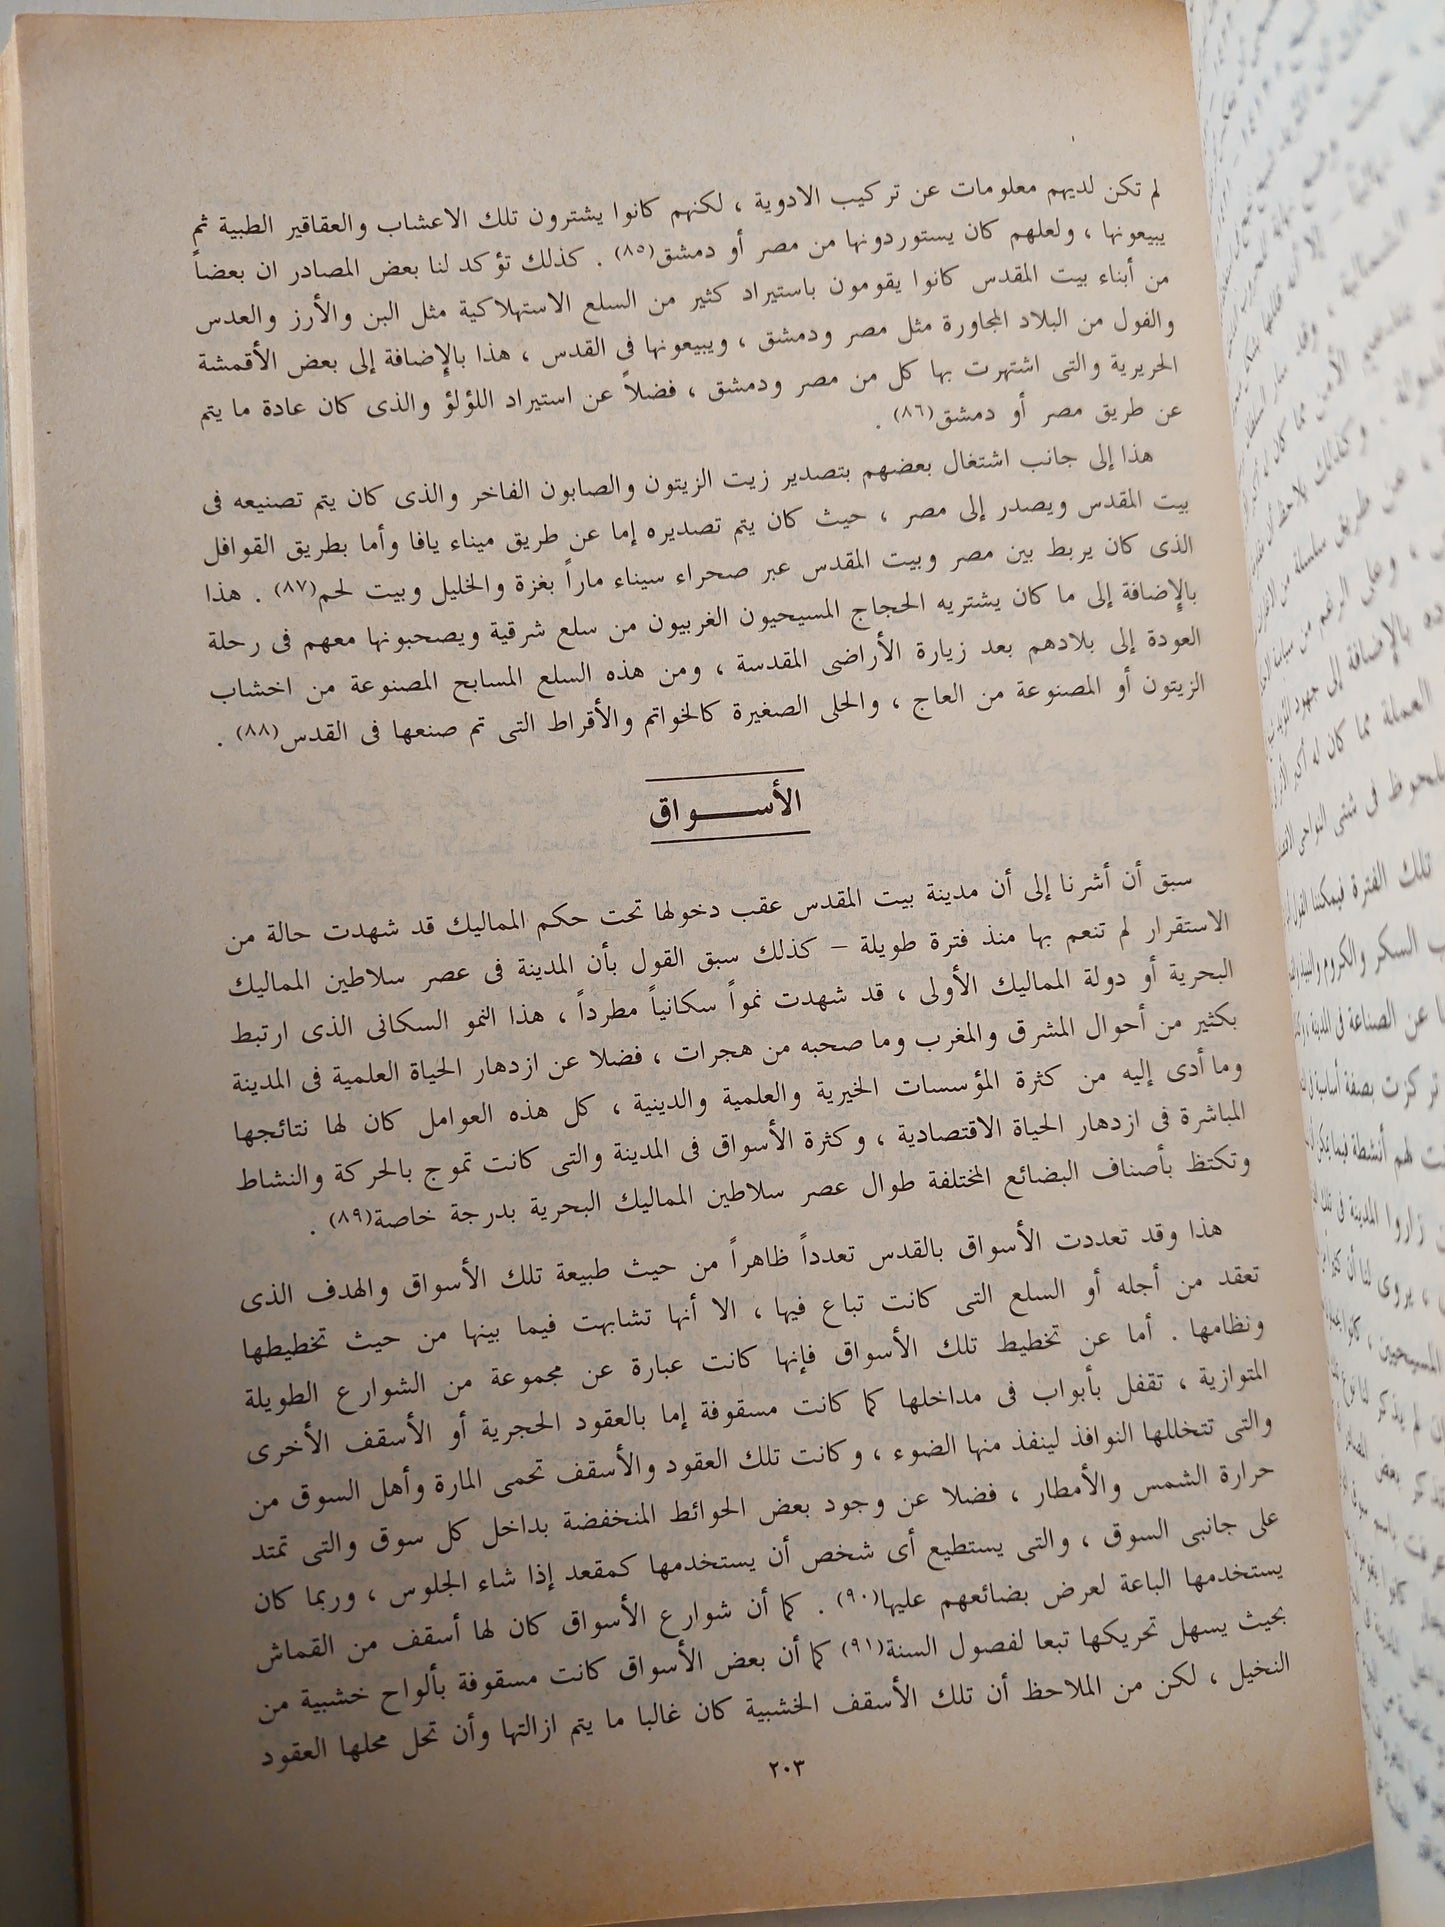 لم تكن لديهم معلومات عن تركيب الادوية ، لكنهم كانوا يشترون تلك الاعشاب والعقاقير الطبية ثم
يبيعونها ، ولعلهم كان يستوردونها من مصر أو دمشق(٨٥) . كذلك تؤكد لنا بعض المصادر ان بعضاً
من أبناء بيت المقدس كانوا يقومون باستيراد كثير من السلع الاستهلاكية مثل البن والأرز والعدس
والفول من البلاد المجاورة مثل مصر ودمشق ، ويبيعونها فى القدس ، هذا بالإضافة إلى بعض الأقمشة
الحريرية والتى اشتهرت بها كل من مصر ودمشق ، فضلاً عن استيراد اللؤلؤ والذى كان عادة ما يتم
عن طريق مصر أو دمشق(٨٦) .
هذا إلى جانب اشتغال بعضهم بتصدير زيت الزيتون والصابون الفاخر والذى كان يتم تصنيعه فى
بيت المقدس ويصدر إلى مصر ، حيث كان يتم تصديره إما عن طريق ميناء يافا وأما بطريق القوافل
الذى كان يربط بين مصر وبيت المقدس عبر صحراء سيناء ماراً بغزة والخليل وبيت لحم(٨٧) . هذا
بالإضافة إلى ما كان يشتريه الحجاج المسيحيون الغربيون من سلع شرقية ويصحبونها معهم فى رحلة
العودة إلى بلادهم بعد زيارة الأراضى المقدسة ، ومن هذه السلع المسابح المصنوعة من اخشاب
الزيتون أو المصنوعة من العاج ، والحلى الصغيرة كالخواتم والأقراط التى تم صنعها فى القدس(٨٨) .
الأســـواق
سبق أن أشرنا إلى أن مدينة بيت المقدس عقب دخولها تحت حكم المماليك قد شهدت حالة من
الاستقرار لم تنعم بها منذ فترة طويلة – كذلك سبق القول بأن المدينة فى عصر سلاطين المماليك
البحرية أو دولة المماليك الأولى ، قد شهدت نمواً سكانياً مطرداً ، هذا النمو السكانى الذى ارتبط
بكثير من أحوال المشرق والمغرب وما صحبه من هجرات ، فضلا عن ازدهار الحياة العلمية فى المدينة
وما أدى إليه من كثرة المؤسسات الخيرية والعلمية والدينية ، كل هذه العوامل كان لها نتائجها
المباشرة فى ازدهار الحياة الاقتصادية ، وكثرة الأسواق فى المدينة والتى كانت تموج بالحركة والنشاط
وتكتظ بأصناف البضائع المختلفة طوال عصر سلاطين المماليك البحرية بدرجة خاصة(٨٩) .
هذا وقد تعددت الأسواق بالقدس تعدداً ظاهراً من حيث طبيعة تلك الأسواق والهدف الذى
تعقد من أجله أو السلع التى كانت تباع فيها ، الا أنها تشابهت فيما بينها من حيث تخطيطها
ونظامها . أما عن تخطيط تلك الأسواق فإنها كانت عبارة عن مجموعة من الشوارع الطويلة
المتوازية ، تقفل بأبواب فى مداخلها كما كانت مسقوفة إما بالعقود الحجرية أو الأسقف الأخرى
والتى تتخللها النوافذ لينفذ منها الضوء ، وكانت تلك العقود والأسقف تحمى المارة وأهل السوق من
حرارة الشمس والأمطار ، فضلا عن وجود بعض الحوائط المنخفضة بداخل كل سوق والتى تمتد
على جانبى السوق ، والتى يستطيع أى شخص أن يستخدمها كمقعد إذا شاء الجلوس ، وربما كان
يستخدمها الباعة لعرض بضائعهم عليها(٩٠) . كما أن شوارع الأسواق كان لها أسقف من القماش
بحيث يسهل تحريكها تبعا لفصول السنة(٩١) كما أن بعض الأسواق كانت مسقوفة بألواح خشبية من
النخيل ، لكن من الملاحظ أن تلك الأسقف الخشبية كان غالبا ما يتم ازالتها وأن تحل محلها العقود
٢٠٣